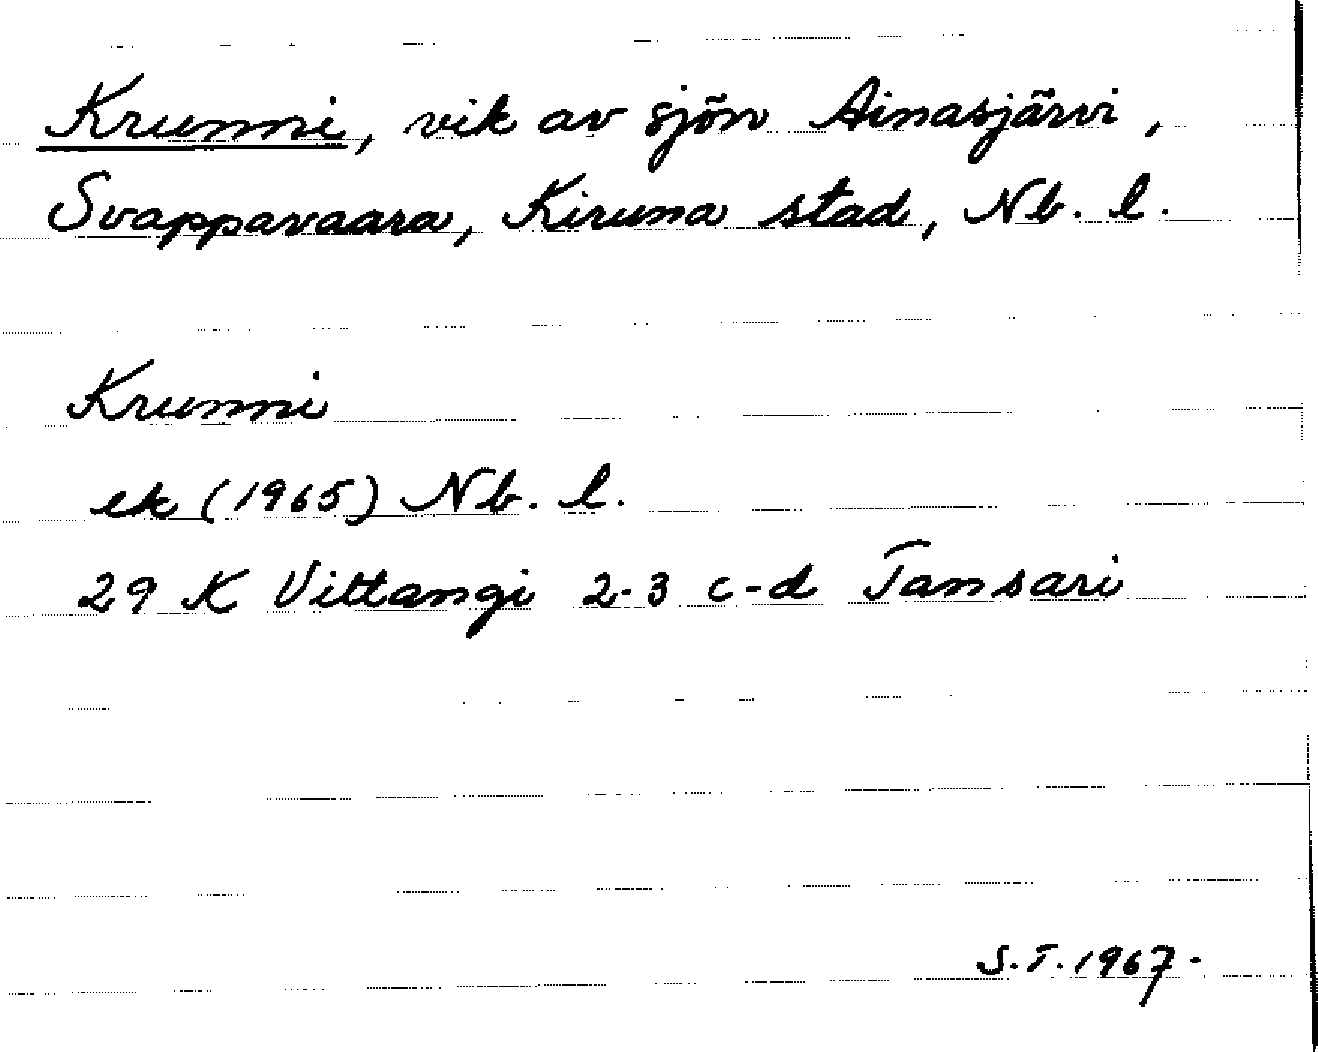 Krunni, vik av sjön Ainasjärvi,
Svappavaara, Kiruna stad, Nb. l.
Krunni
ek (1965) Nb. l.
29 K Vittangi 2-3 c-d Tansari
S.T. 1967.